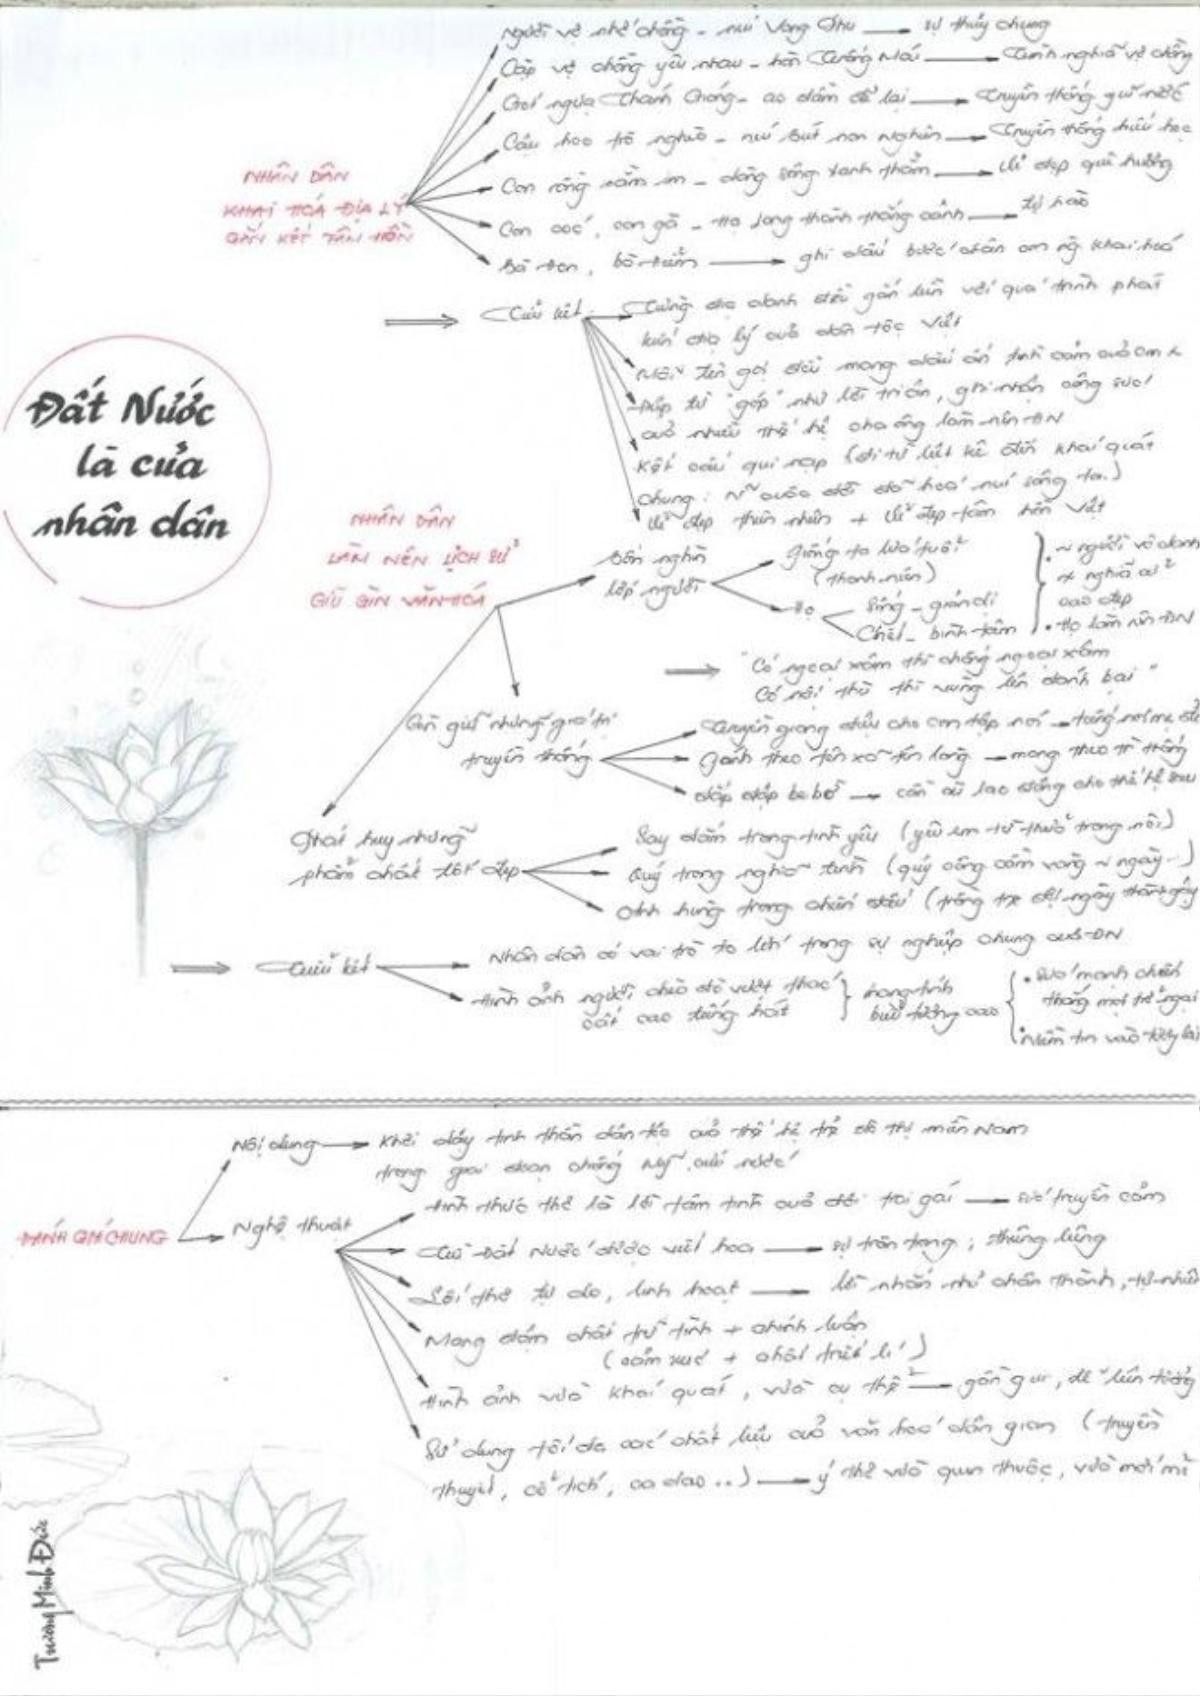 Người vợ nhớ chồng - núi Vọng Phu → sự thủy chung
Cặp vợ chồng yêu nhau - hòn Trống Mái → Tình nghĩa vợ chồng
Gót ngựa Thánh Gióng - ao đầm để lại → Truyền thống giữ nước
Cậu học trò nghèo - núi Bút non Nghiên → Truyền thống hiếu học
Con rồng nằm im - dòng sông xanh thẳm → Vẻ đẹp quê hương
Con cóc, con gà - Hạ Long thành thắng cảnh → tự hào
Bà Đen, bà Điểm → ghi dấu bước chân ng khai hoá
NHÂN DÂN
KHAI HOÁ ĐỊA LÝ
GẮN KẾT TÂM HỒN
⇒ Tiểu kết
Từng địa danh đều gắn liền với quá trình phát
kiến địa lý của dân tộc Việt
Mỗi tên gọi đều mang dấu ấn tình cảm của
Điệp từ "góp" như lời tri ân, ghi nhận công sức
của nhiều thế hệ cha ông làm nên ĐN
Kết cấu qui nạp (đi từ liệt kê đến khái quát
chung: N~ cuộc đời đã hoá núi sông ta.)
Vẻ đẹp thiên nhiên + Vẻ đẹp tâm hồn Việt
Đất Nước
là của
nhân dân
NHÂN DÂN
LÀM NÊN LỊCH SỬ
GIỮ GÌN VĂN HOÁ
Bốn nghìn
lớp người
Giống ta lứa tuổi
(thanh niên)
Họ
Sống - giản dị
Chết - bình tâm
• ~ người vô danh
nghĩa cử
cao đẹp
• Họ làm nên ĐN
⇒ "Có ngoại xâm thì chống ngoại xâm
Có nội thù thì vùng lên đánh bại"
Gìn giữ những giá trị
truyền thống
Truyền giọng điệu cho con tập nói → tiếng nói mẹ đẻ
Gánh theo tên xã tên làng → mang theo tr thống
Đắp đập be bờ → cần cù lao động cho thế hệ sau
Phát huy những
phẩm chất tốt đẹp
Say đắm trong tình yêu (yêu em từ thuở trong nôi)
Quý trọng nghĩa tình (quý công cầm vàng ~ ngày..)
Anh hùng trong chiến đấu (trồng tre đợi ngày thành gậy
⇒ Tiểu kết
Nhân dân có vai trò to lớn trong sự nghiệp chung của ĐN
Hình ảnh người chèo đò vượt thác
cất cao tiếng hát
mang tính
biểu tượng cao
• Sức mạnh chiến
thắng mọi trở ngại
• Niềm tin vào tương lai
ĐÁNH GIÁ CHUNG
Nội dung → Khơi dậy tinh thần dân tộc của thế hệ trẻ đô thị miền Nam
trong giai đoạn chống Mỹ cứu nước
Nghệ thuật
Hình thức thơ là lời tâm tình của đôi trai gái → sức truyền cảm
Chữ Đất Nước được viết hoa → sự trân trọng, thiêng liêng
Lối thơ tự do, linh hoạt → lời nhắn nhủ chân thành, tự nhiên
Mang đậm chất trữ tình + chính luận
(cảm xúc + chất triết lí)
Hình ảnh vừa khái quát, vừa cụ thể → gần gũi, dễ liên tưởng
Sử dụng tối đa các chất liệu của văn hoá dân gian (truyền
thuyết, cổ tích, ca dao..) → ý thơ vừa quen thuộc, vừa mới mẻ
Trương Minh Đức